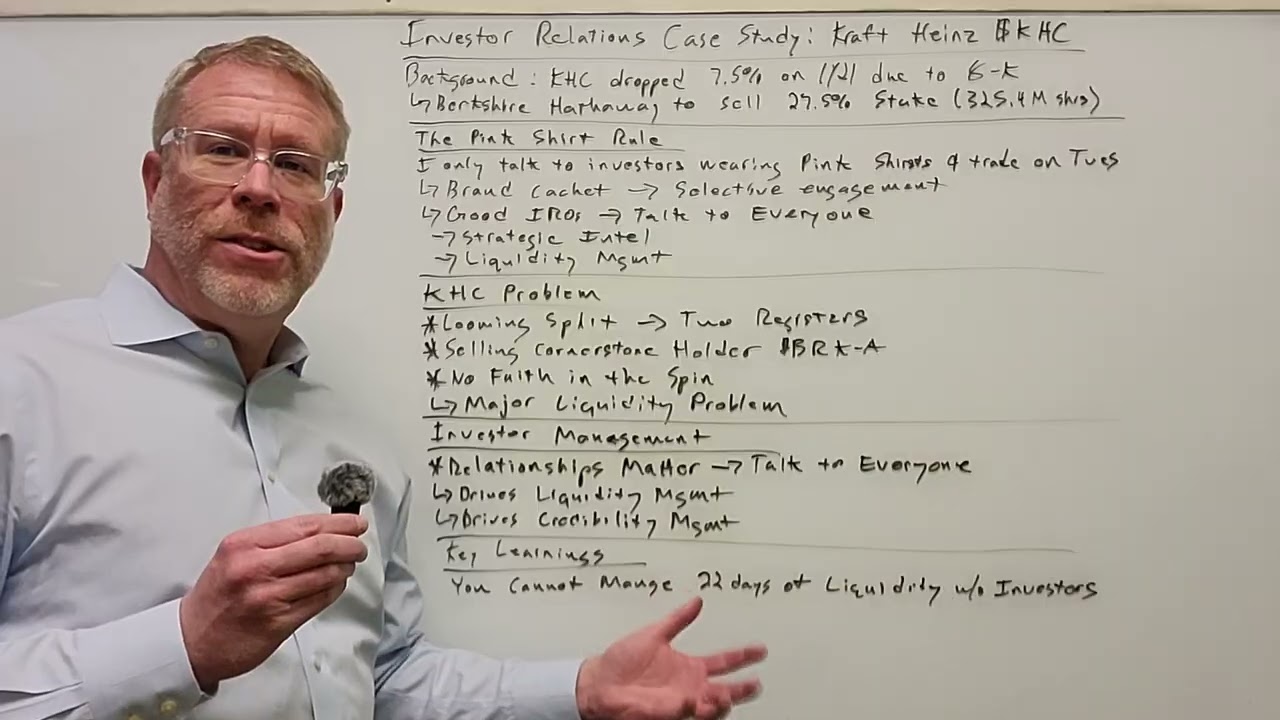 Investor Relations Case Study: Kraft Heinz $KHC
Background: KHC dropped 7.5% on 1/21 due to 8-K
↳ Berkshire Hathaway to sell 27.5% Stake (325.4M shrs)
The Pink Shirt Rule
I only talk to investors wearing Pink Shirts & trade on Tues
↳ Brand Cachet → Selective engagement
↳ Good IROs → Talk to Everyone
→ Strategic Intel
→ Liquidity Mgmt
KHC Problem
*Looming Split → Two Registers
*Selling Cornerstone Holder $BRK-A
*No Faith in the Spin
↳ Major Liquidity Problem
Investor Management
*Relationships Matter → Talk to Everyone
↳ Drives Liquidity Mgmt
↳ Drives Credibility Mgmt
Key Learnings
You Cannot Mange 22 days of Liquidity w/o Investors